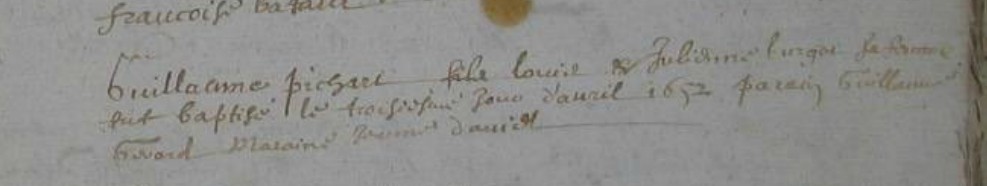 francoise
Guillaume pichart fils louis & Julienne burgot sa femme
fut baptisé le troisiesme jour d'auril 1652 parain Guillaume
Gerard Maraine Jeanne Dauid